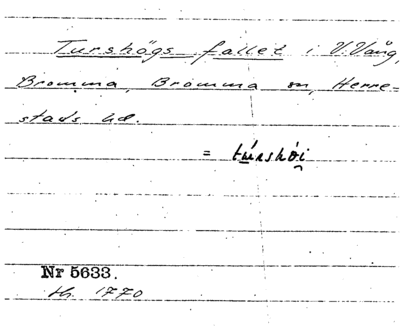 Turshögs fallet i V. Vång,
Bromma, Bromma sn, Herre-
stads hd.
= túrshói
Nr 5633.
th. 1770